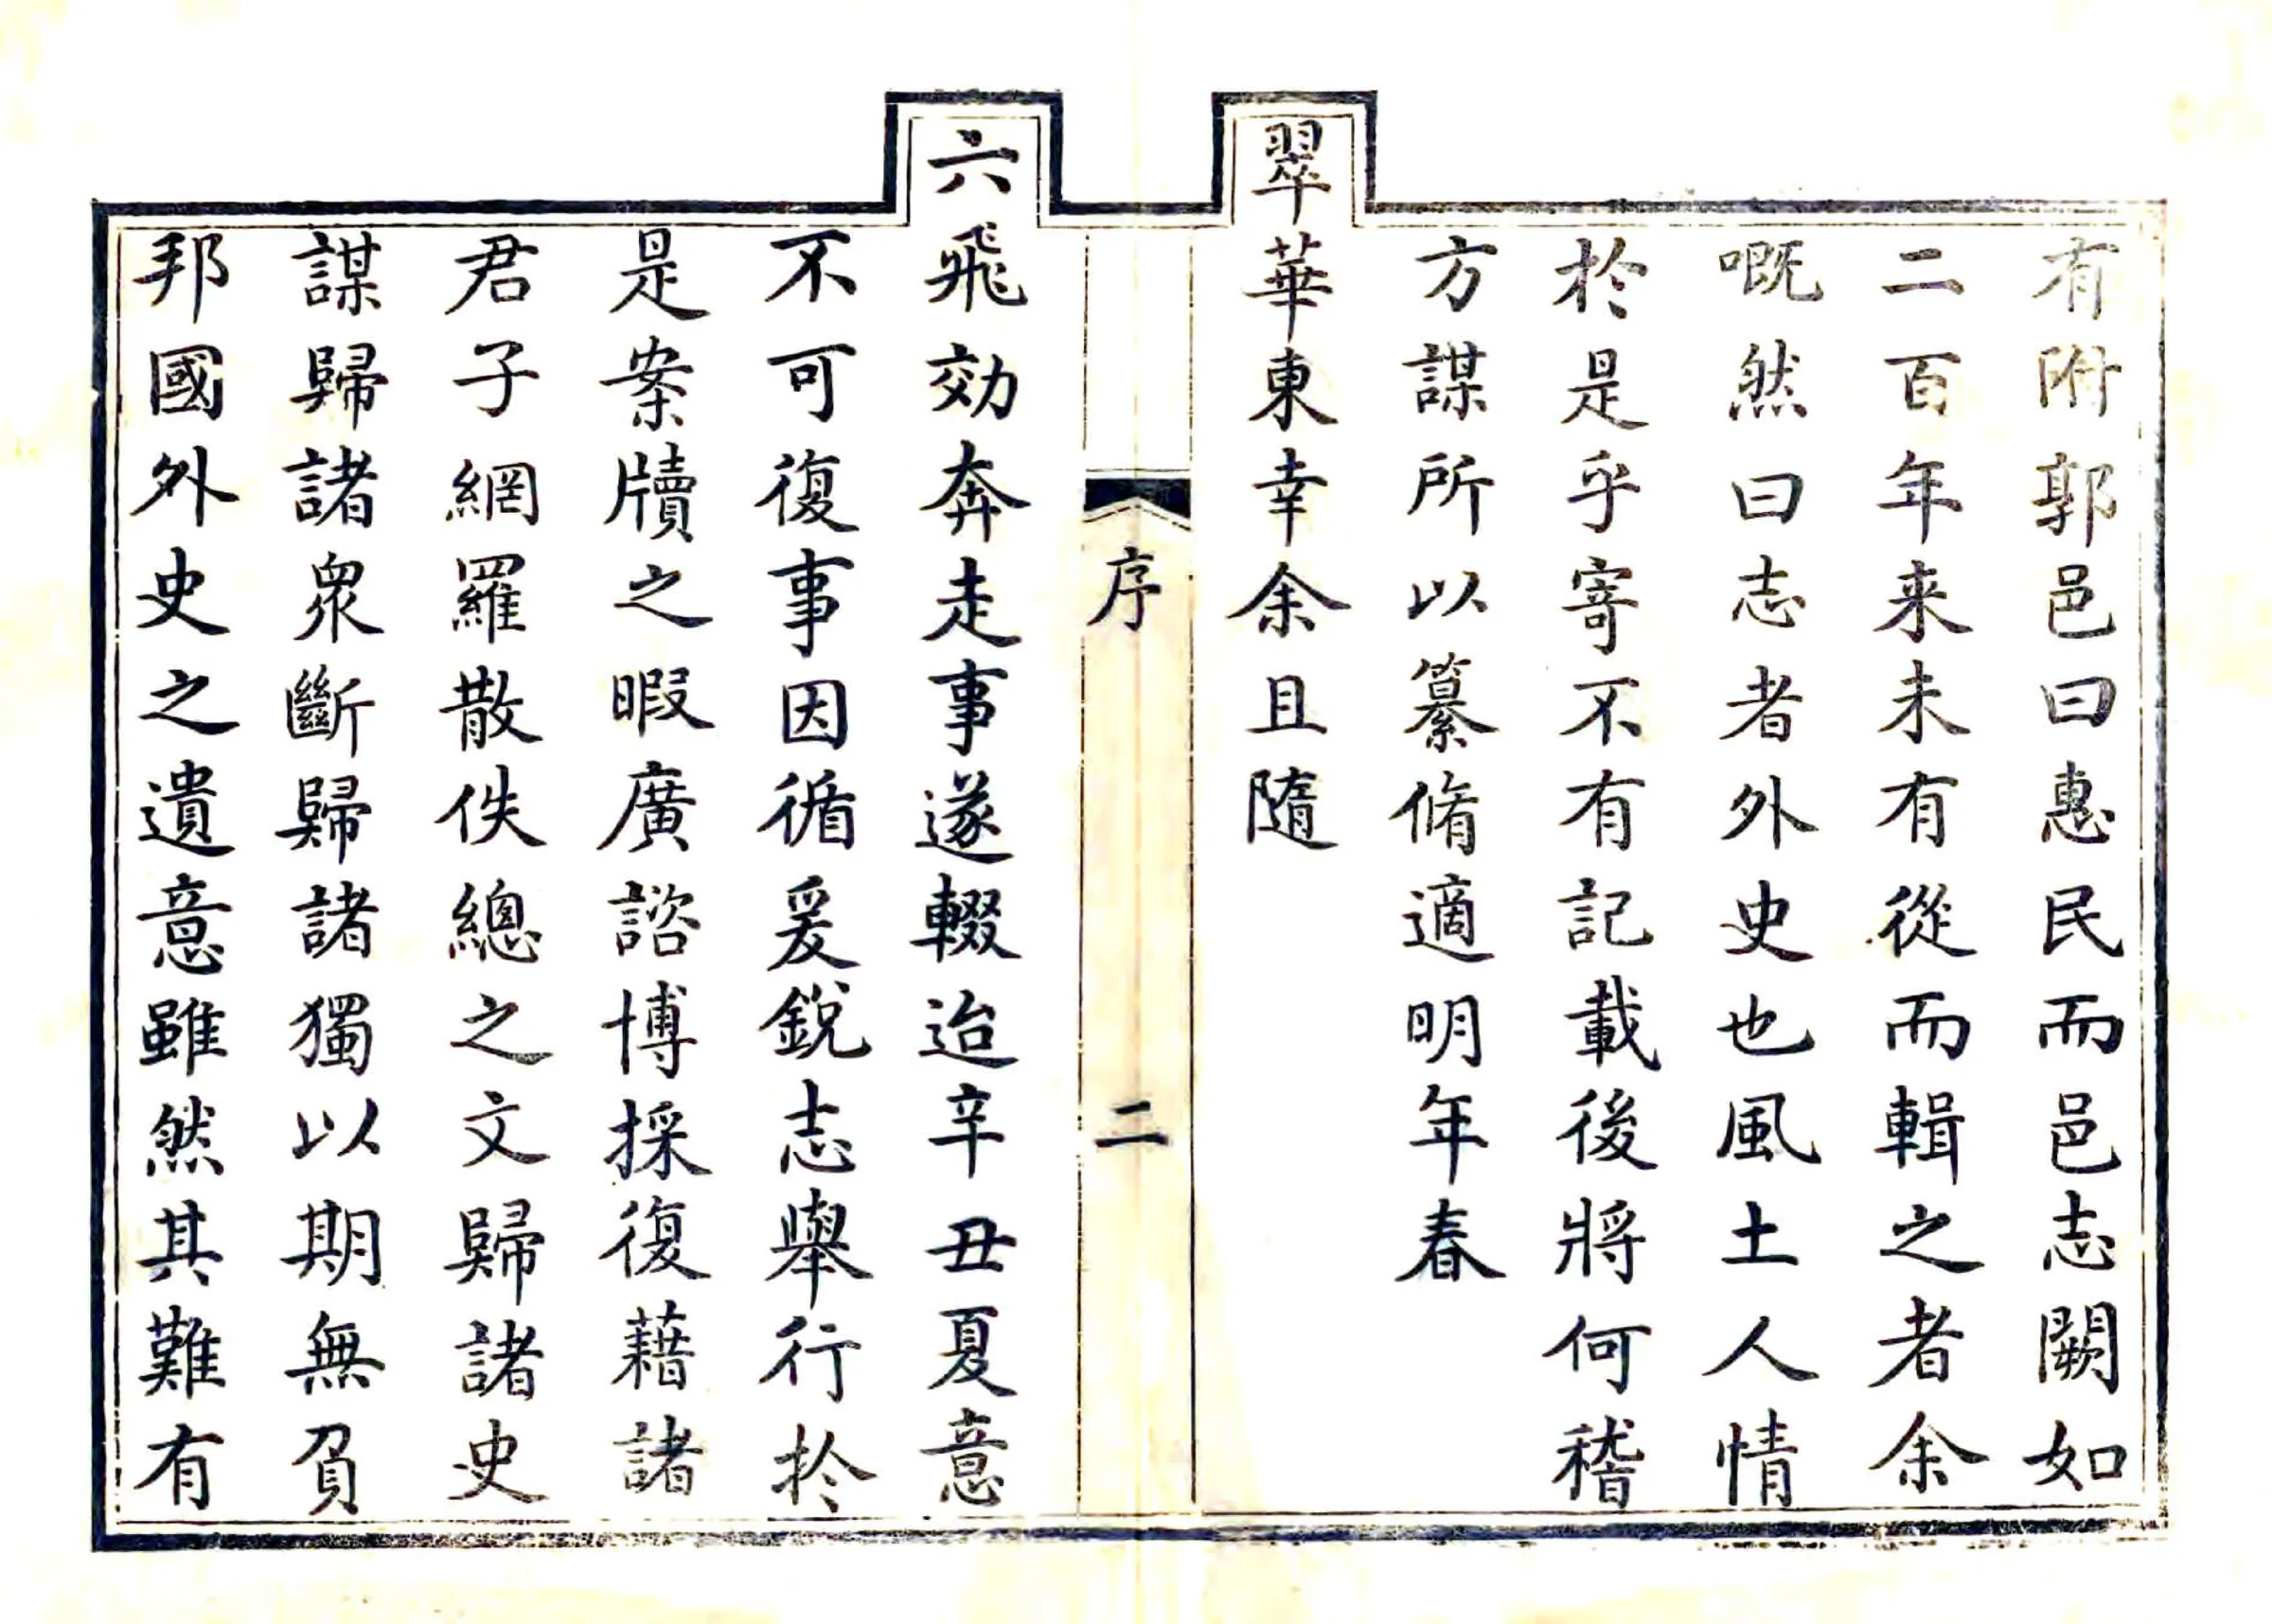 有附郭邑曰惠民而邑志闕如
二百年来未有從而輯之者余
嘅然曰志者外史也風土人情
於是乎寄不有記載後將何稽
方謀所以纂脩適明年春
翠華東幸余且隨
序
二
六飛効奔走事遂輟迨辛丑夏意
不可復事因循爰銳志舉行扵
是案牘之暇廣諮博採復藉諸
君子網羅散佚總之文歸諸史
謀歸諸衆斷歸諸獨以期無負
邦國外史之遺意雖然其難有